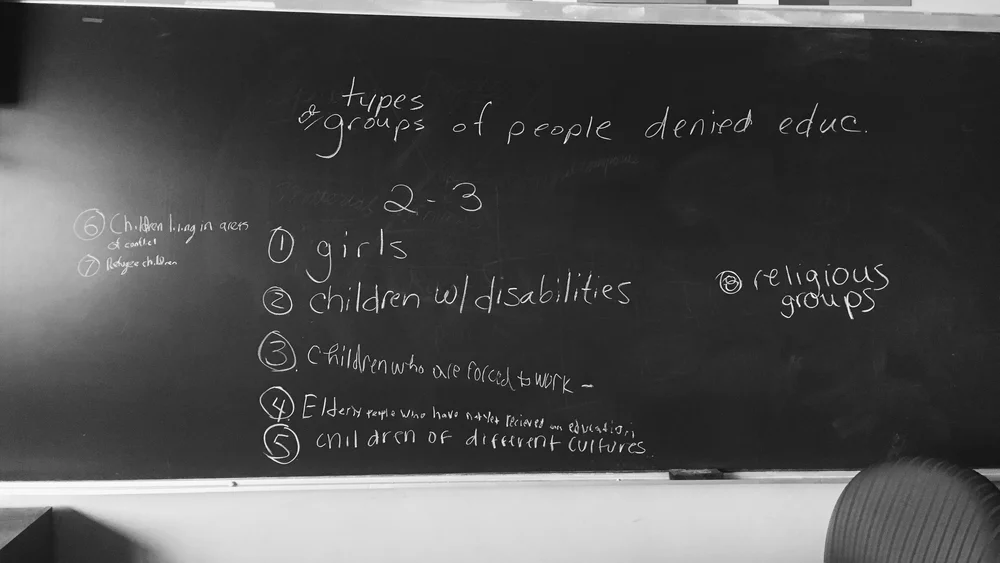 types
of groups of people denied educ.
2-3
① girls
② children w/disabilities
③ Children who are forced to work -
④ Elderly people who have not yet recieved an education
⑤ children of different cultures
⑥ Children living in areas
of conflict
⑦ Refugee children
⑧ religious
groups